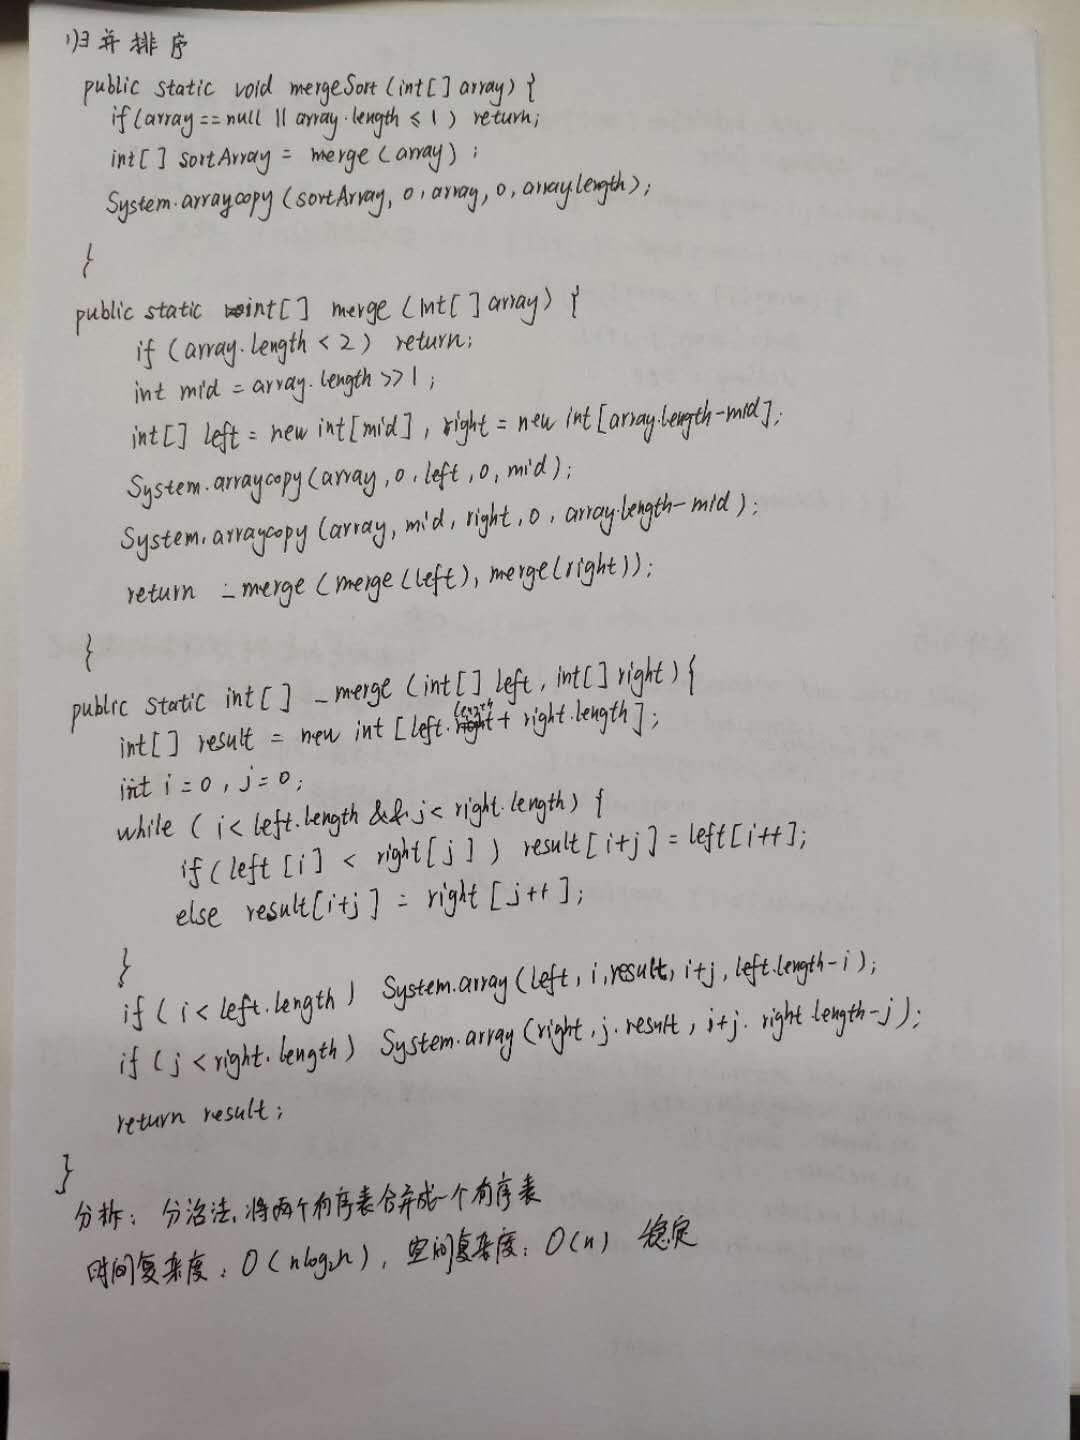 归并排序
public static void mergeSort (int[] array) {
if(array==null || array.length ≤ 1) return;
int[] sortArray = merge (array) ;
System.arraycopy (sortArray, 0, array, 0, array.length);
}
public static int[] merge (int[] array) {
if (array.length < 2) return;
int mid = array.length >> 1 ;
int[] left = new int[mid], right = new int [array.length-mid];
System.arraycopy (array, 0, left, 0, mid);
System.arraycopy (array, mid, right, 0, array.length-mid);
return _merge (merge(left), merge(right));
}
public static int[] _merge (int[] left, int[] right) {
int[] result = new int [left.length + right.length];
int i=0, j=0;
while ( i< left.length && j< right.length) {
if (left [i] < right[j]) result[i+j] = left[i++];
else result[i+j] = right [j++];
}
if ( i < left.length ) System.array (left, i, result, i+j, left.length-i);
if ( j < right.length) System.array (right, j. result, i+j. right length-j);
return result;
}
分析: 分治法, 将两个有序表合并成一个有序表
时间复杂度: O(nlog₂n), 空间复杂度: O(n) 稳定